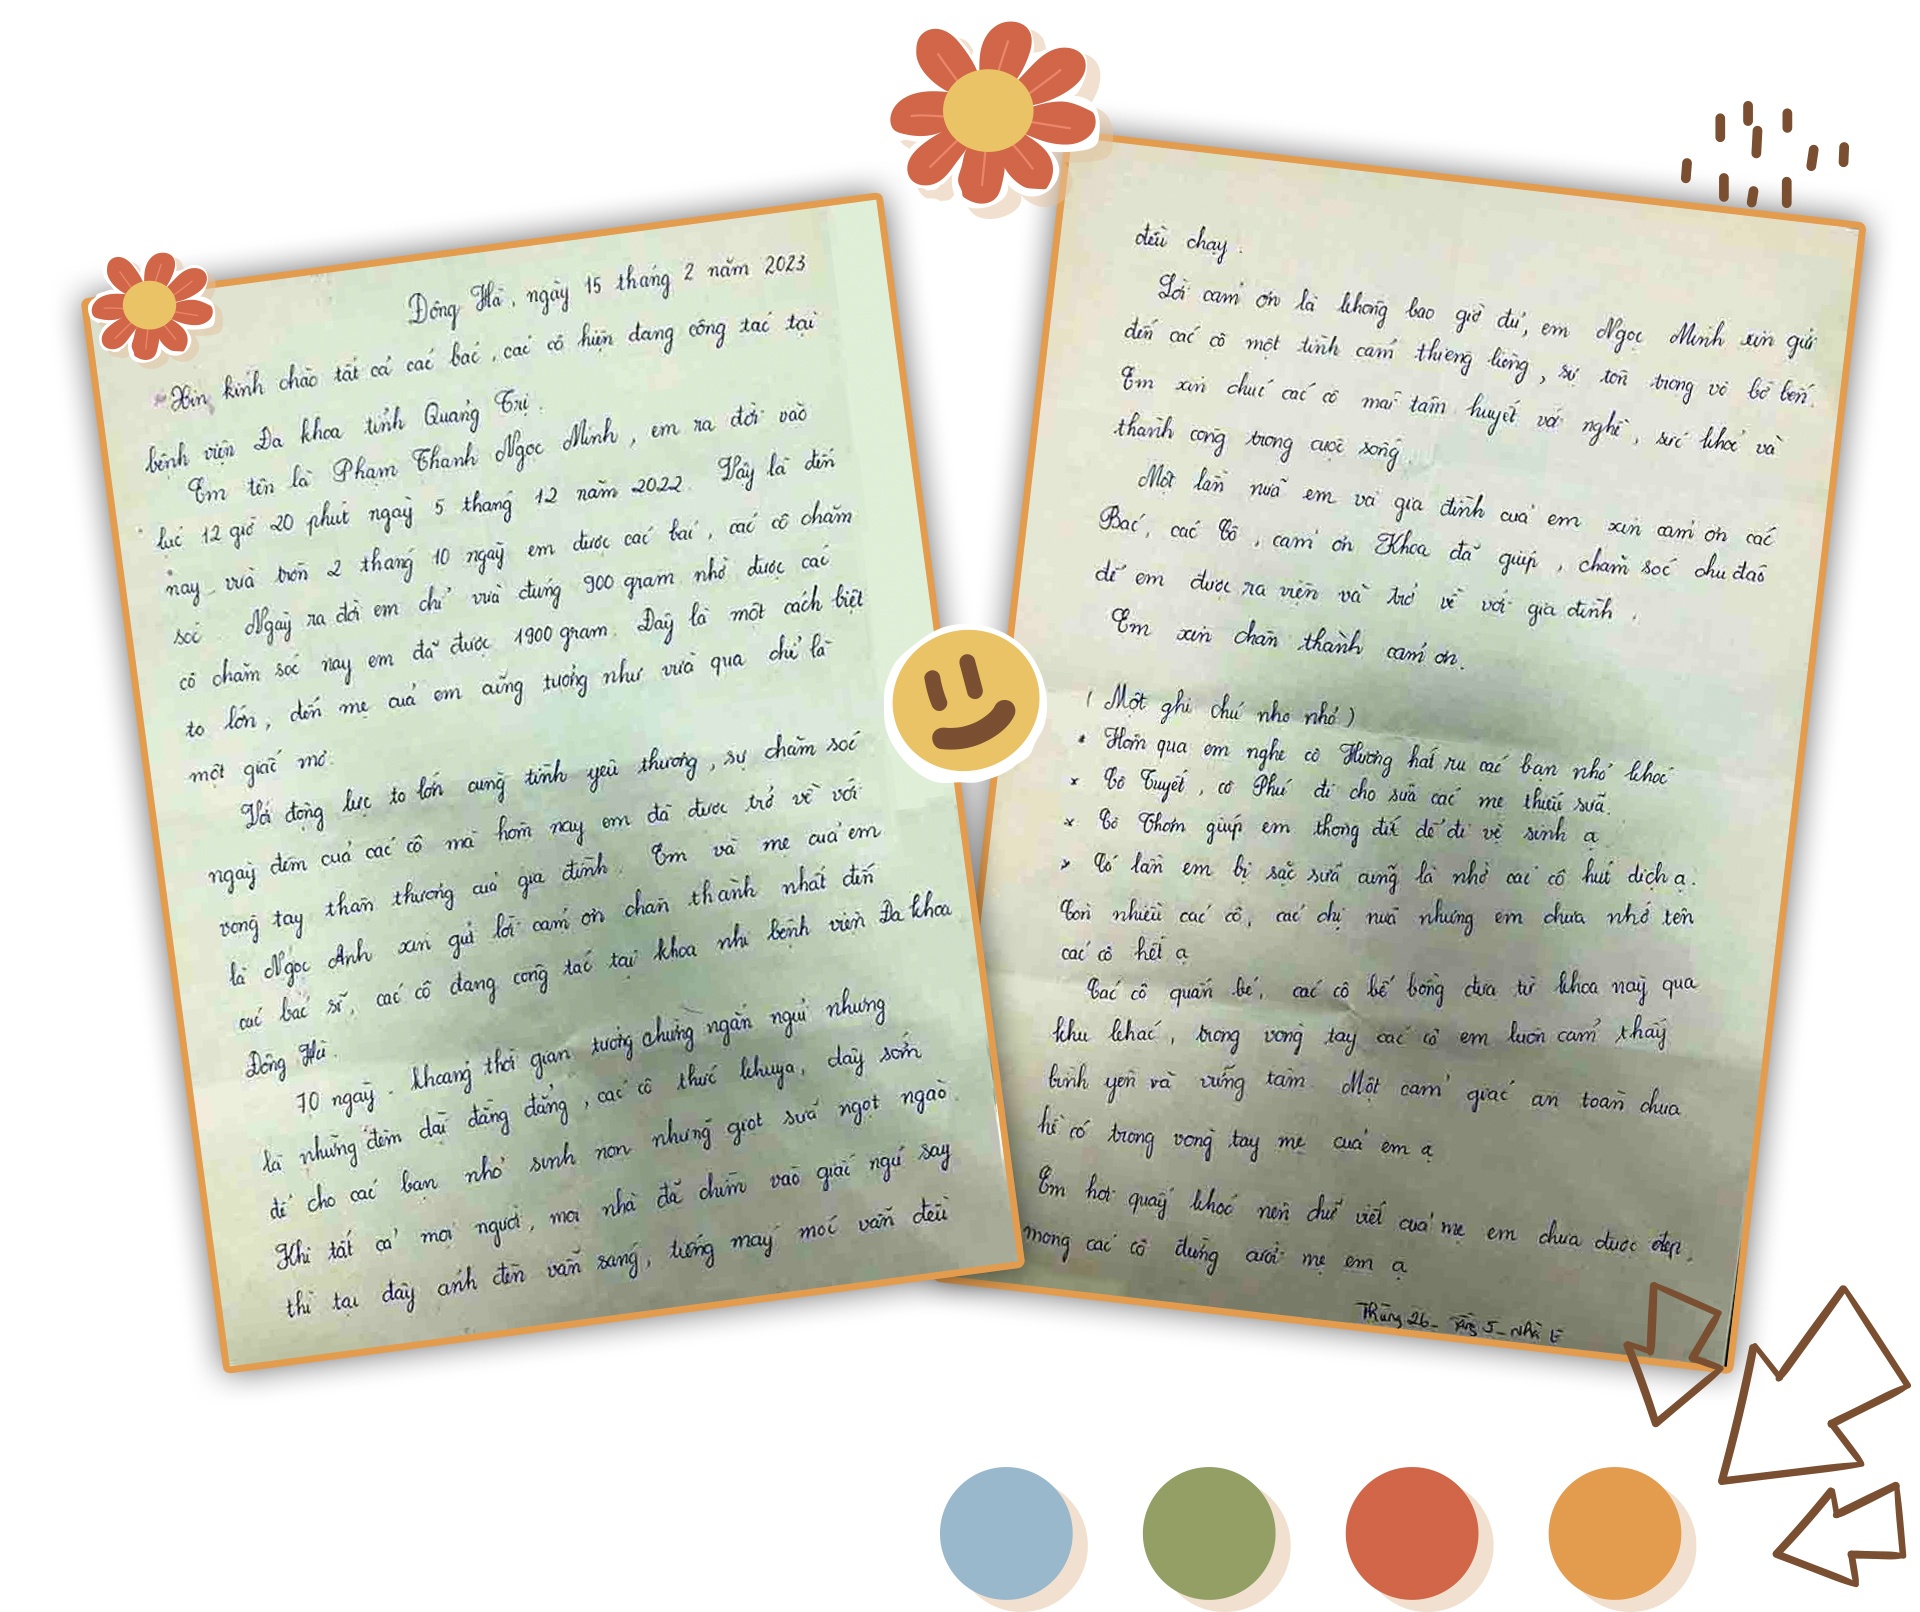 Đông Hà, ngày 15 tháng 2 năm 2023
Xin kính chào tất cả các bác, các cô hiện đang công tác tại
bệnh viện Đa khoa tỉnh Quảng Trị.
Em tên là Phạm Thanh Ngọc Minh, em ra đời vào
lúc 12 giờ 20 phút ngày 5 tháng 12 năm 2022. Vậy là đến
nay vừa tròn 2 tháng 10 ngày em được các bác, các cô chăm
sóc. Ngày ra đời em chỉ vừa đúng 900 gram nhờ được các
cô chăm sóc nay em đã được 1900 gram. Đây là một cách biệt
to lớn, đến mẹ của em cũng tưởng như vừa qua chỉ là
một giấc mơ.
Với động lực to lớn cùng tình yêu thương, sự chăm sóc
ngày đêm của các cô mà hôm nay em đã được trở về với
vòng tay thân thương của gia đình. Em và mẹ của em
là Ngọc Anh xin gửi lời cảm ơn chân thành nhất đến
các bác sĩ, các cô đang công tác tại khoa nhi bệnh viện Đa khoa
Đông Hà.
70 ngày - khoảng thời gian tưởng chừng ngắn ngủi nhưng
là những đêm dài đằng đẵng, các cô thức khuya, dậy sớm
để cho các bạn nhỏ sinh non những giọt sữa ngọt ngào.
Khi tất cả mọi người, mọi nhà đã chìm vào giấc ngủ say
thì tại đây ánh đèn vẫn sáng, tiếng máy móc vẫn đều
đều chạy.
Lời cảm ơn là không bao giờ đủ, em Ngọc Minh xin gửi
đến các cô một tình cảm thiêng liêng, sự tôn trọng vô bờ bến.
Em xin chúc các cô mãi tâm huyết với nghề, sức khoẻ và
thành công trong cuộc sống.
Một lần nữa em và gia đình của em xin cảm ơn các
Bác, các Cô, cảm ơn Khoa đã giúp, chăm sóc chu đáo
để em được ra viện và trở về với gia đình.
Em xin chân thành cảm ơn.
(Một ghi chú nho nhỏ)
* Hôm qua em nghe cô Hường hát ru các bạn nhỏ khóc
* Cô Tuyết, cô Phú đi cho sữa các mẹ thiếu sữa.
* Cô Thơm giúp em thông đít để đi vệ sinh ạ
* Có lần em bị sặc sữa cũng là nhờ các cô hút dịch ạ.
Còn nhiều các cô, các chị nữa nhưng em chưa nhớ tên
các cô hết ạ
Các cô quấn bé, các cô bế bồng đưa từ khoa này qua
khu khác, trong vòng tay các cô em luôn cảm thấy
bình yên và vững tâm. Một cảm giác an toàn chưa
hề có trong vòng tay mẹ của em ạ
Em hơi quấy khóc nên chữ viết của mẹ em chưa được đẹp,
mong các cô đừng cười mẹ em ạ
Thùng 26 - Tầng 5 - Nhà E